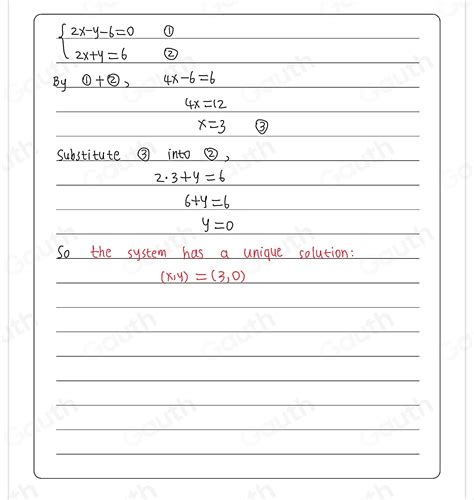 2x-y-6=0 ①
2x+y=6 ②
By ①+②, 4x-6=6
4x=12
x=3 ③
Substitute ③ into ②,
2·3+y=6
6+y=6
y=0
So the system has a unique solution:
(x,y)=(3,0)